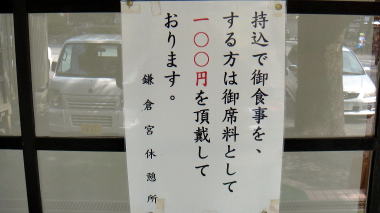 持込で御食事を、
する方は御席料として
一〇〇円を頂戴して
おります。
鎌倉宮休憩所